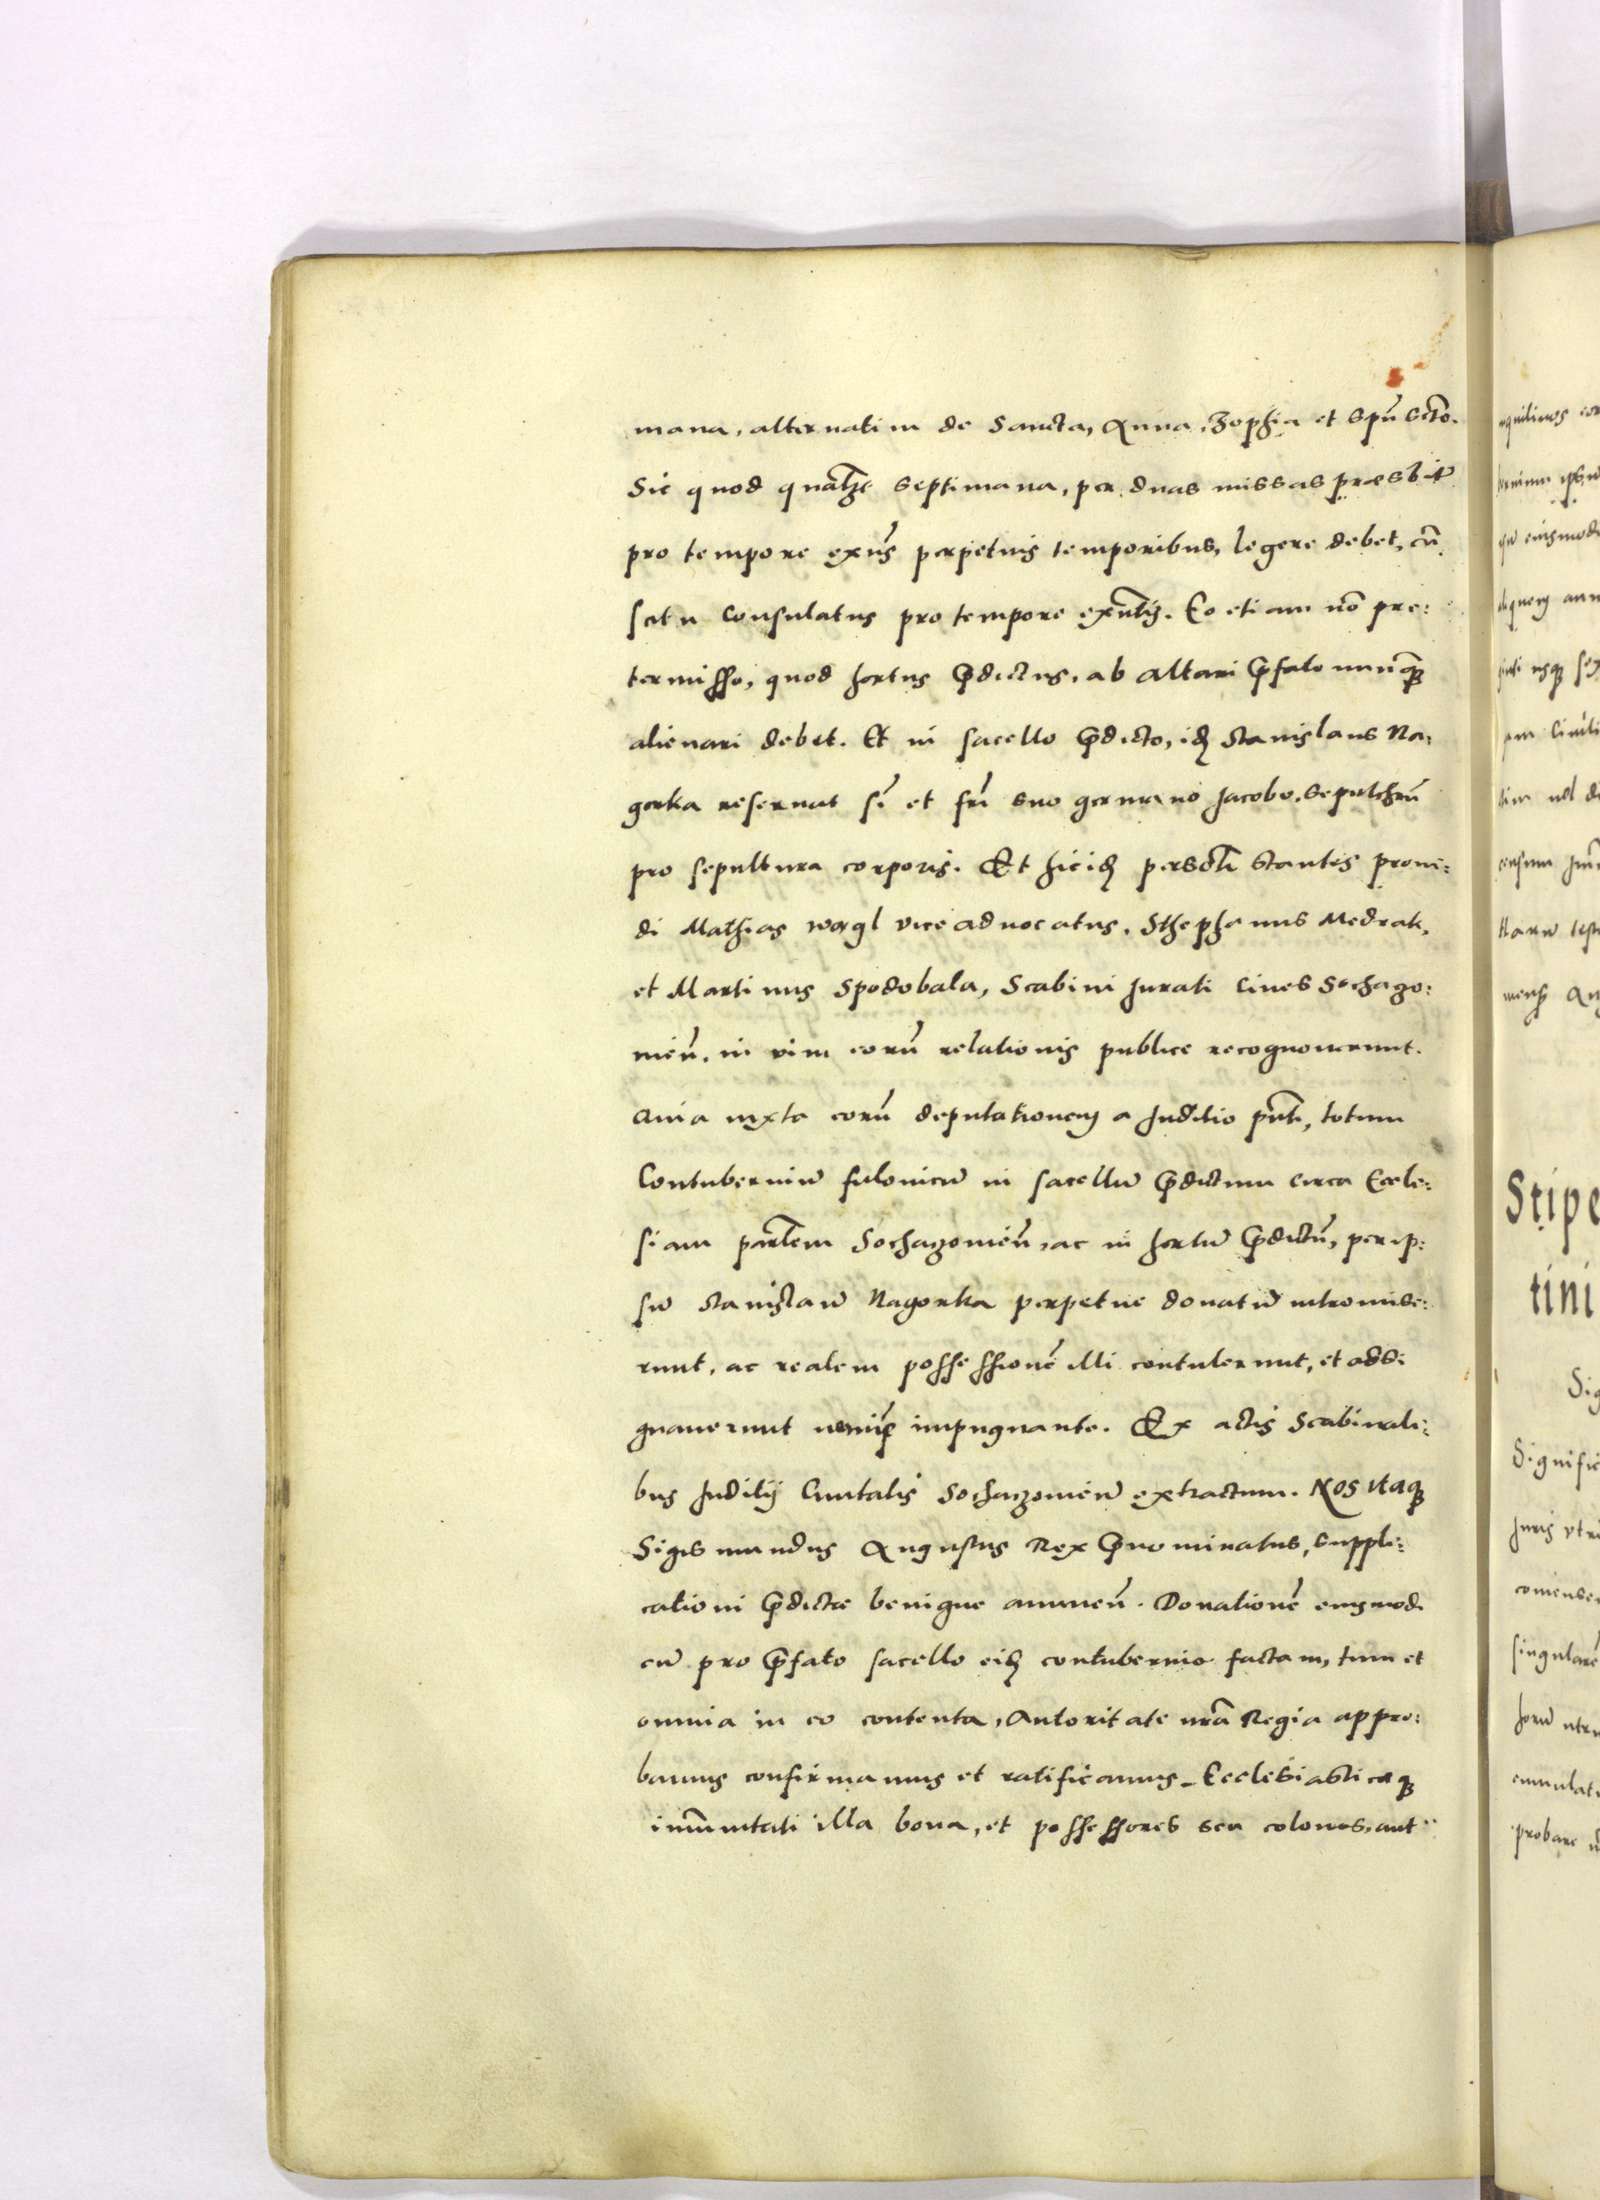 mana, alternatim de Sancta, Anna, Zophia et Spũ Scto.
Sic quod qualȝt septimana, per duas missas præsbitr̃
pro tempore exñs perpetuis temporibus, legere debet, cũ
scitu Consulatus pro tempore exñtis. Eo etiam nõ pre:
termisso, quod hortus p̃dictus, ab altari p̃fato nunq̃
alienari debet. Et in sacello p̃dicto, idẽ Stanislaus Na:
gorka reseruat sĩ et frĩ suo germano Jacobo, sepulchrũ
pro sepultura corporis. Et hicidẽ personlĩ stantes proui:
di Mathias wargl vice aduocatus, Sthephanus Medrak,
et Martinus Spodobala, Scabini Jurati Ciues Sochaȝo:
uieñ. in vim eorũ relationis publice recognouerunt.
Quia iuxta eorũ deputationem a Juditio pñti, totum
Contuberniũ fulonicũ in sacellũ p̃dictum circa Eccle:
siam parlem̃ Sochaȝouieñ, ac in hortũ p̃dictũ, per ip:
sũ Stanislaũ Nagorka perpetue donatũ intromise:
runt, ac realem possessionẽ illi contulerunt, et assi:
gnauerunt nemĩe impugnante. Ex actis Scabinali:
bus Juditij Ciuitatis Sochaczouieñ extractum. Nos itaq̃
Sigismundus Augustus Rex p̃nominatus, suppli:
cationi p̃dictæ benigne annueñ. Donationẽ eiusmodi
cũ pro p̃fato sacello eidẽ contubernio factam, tum et
omnia in eo contenta, Autoritate nrã Regia appro:
bamus confirmamus et ratificamus. Ecclesiasticæq̃
imũnitati illa bona, et possessores seu colonos, aut
Stipe
tini
Sig
Signific
Juris vtri
singularẽ
probare